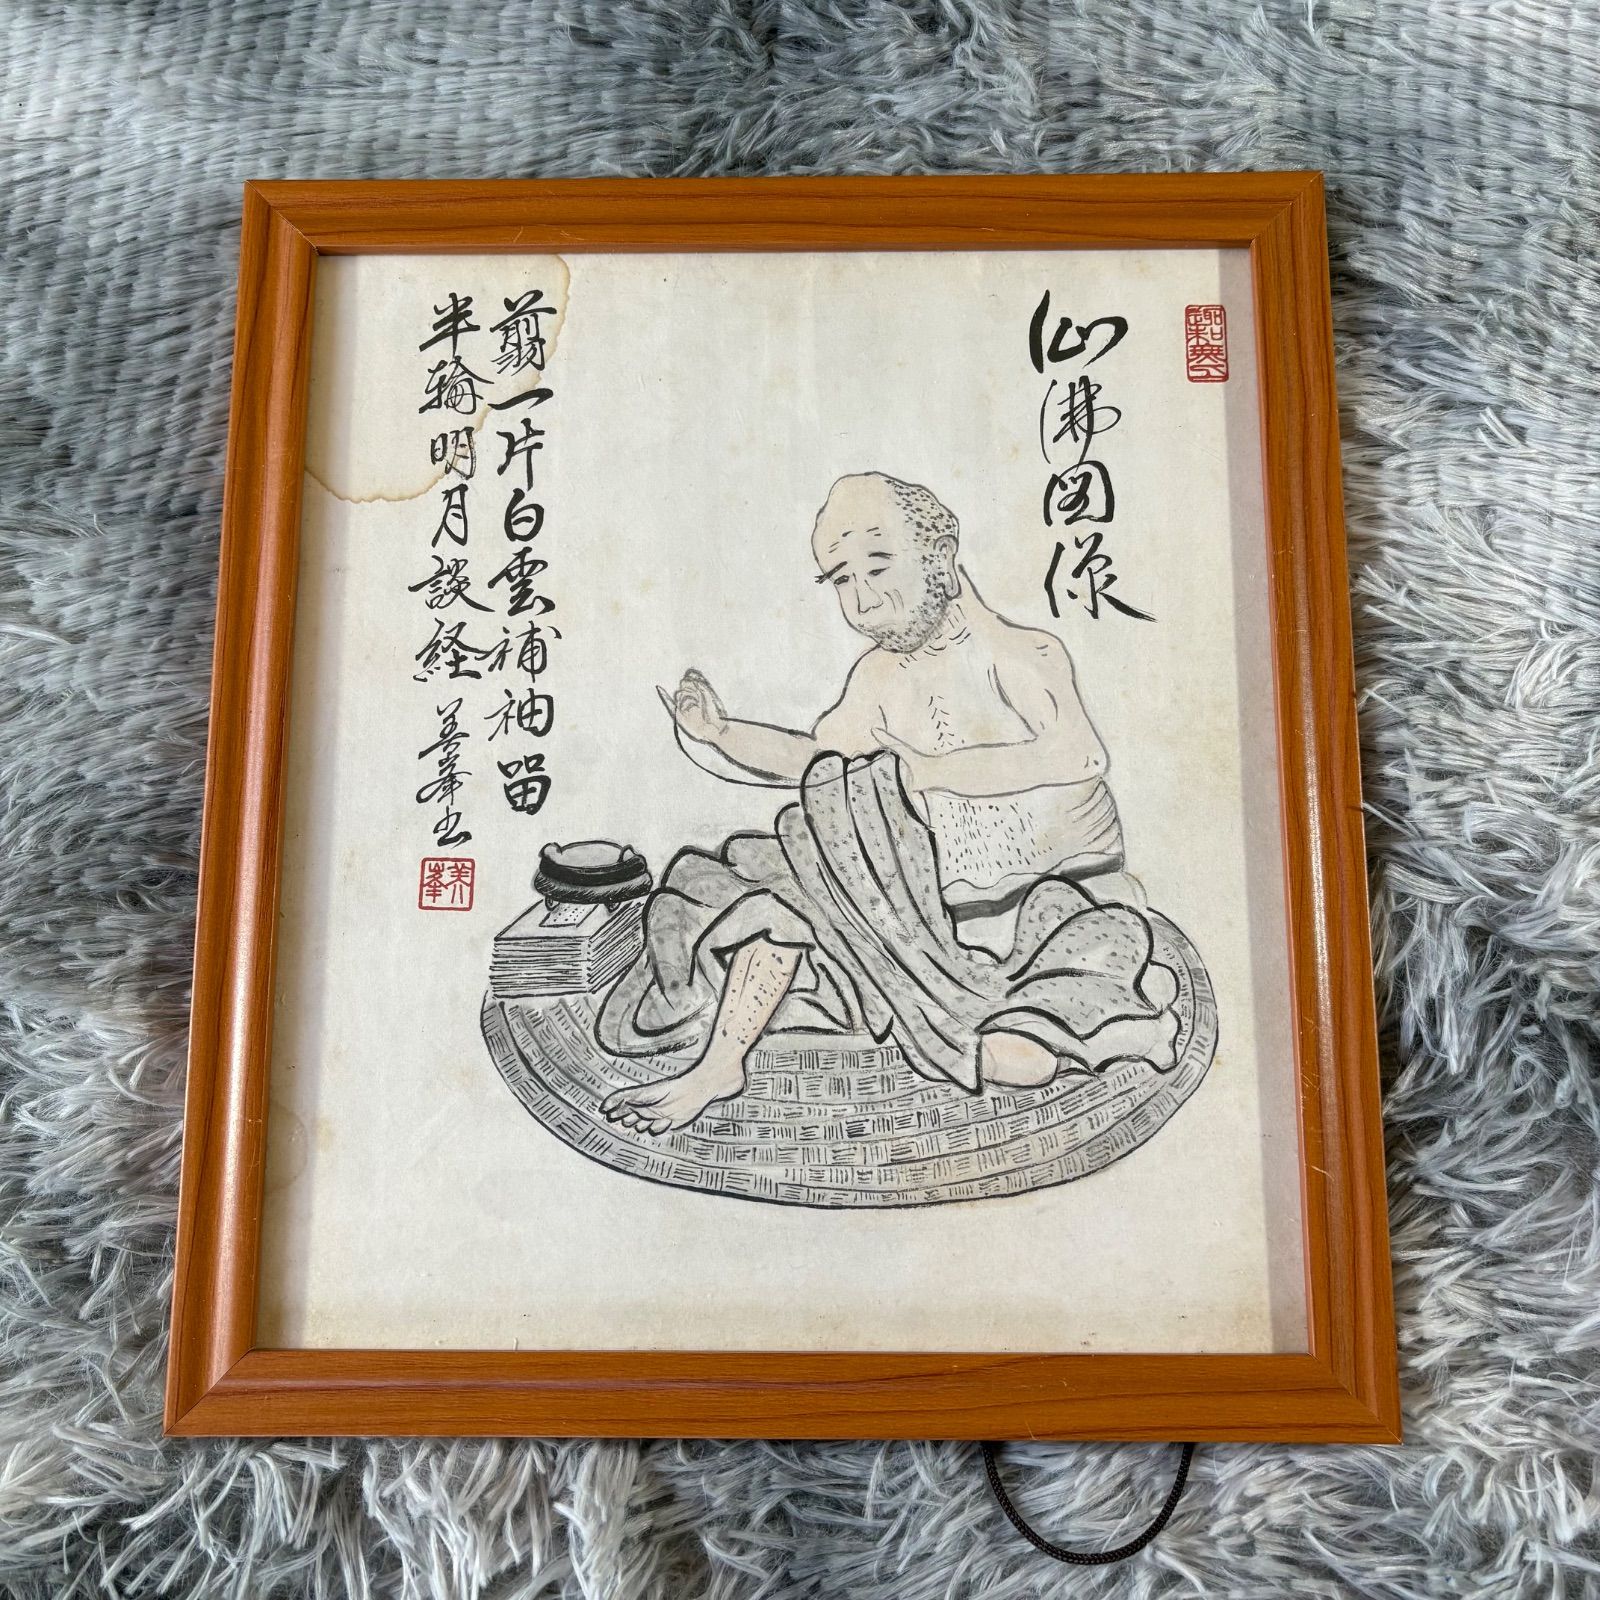 仙佛图像
翦一片白雲補袖留
半輪明月談経
美峯书
美峯